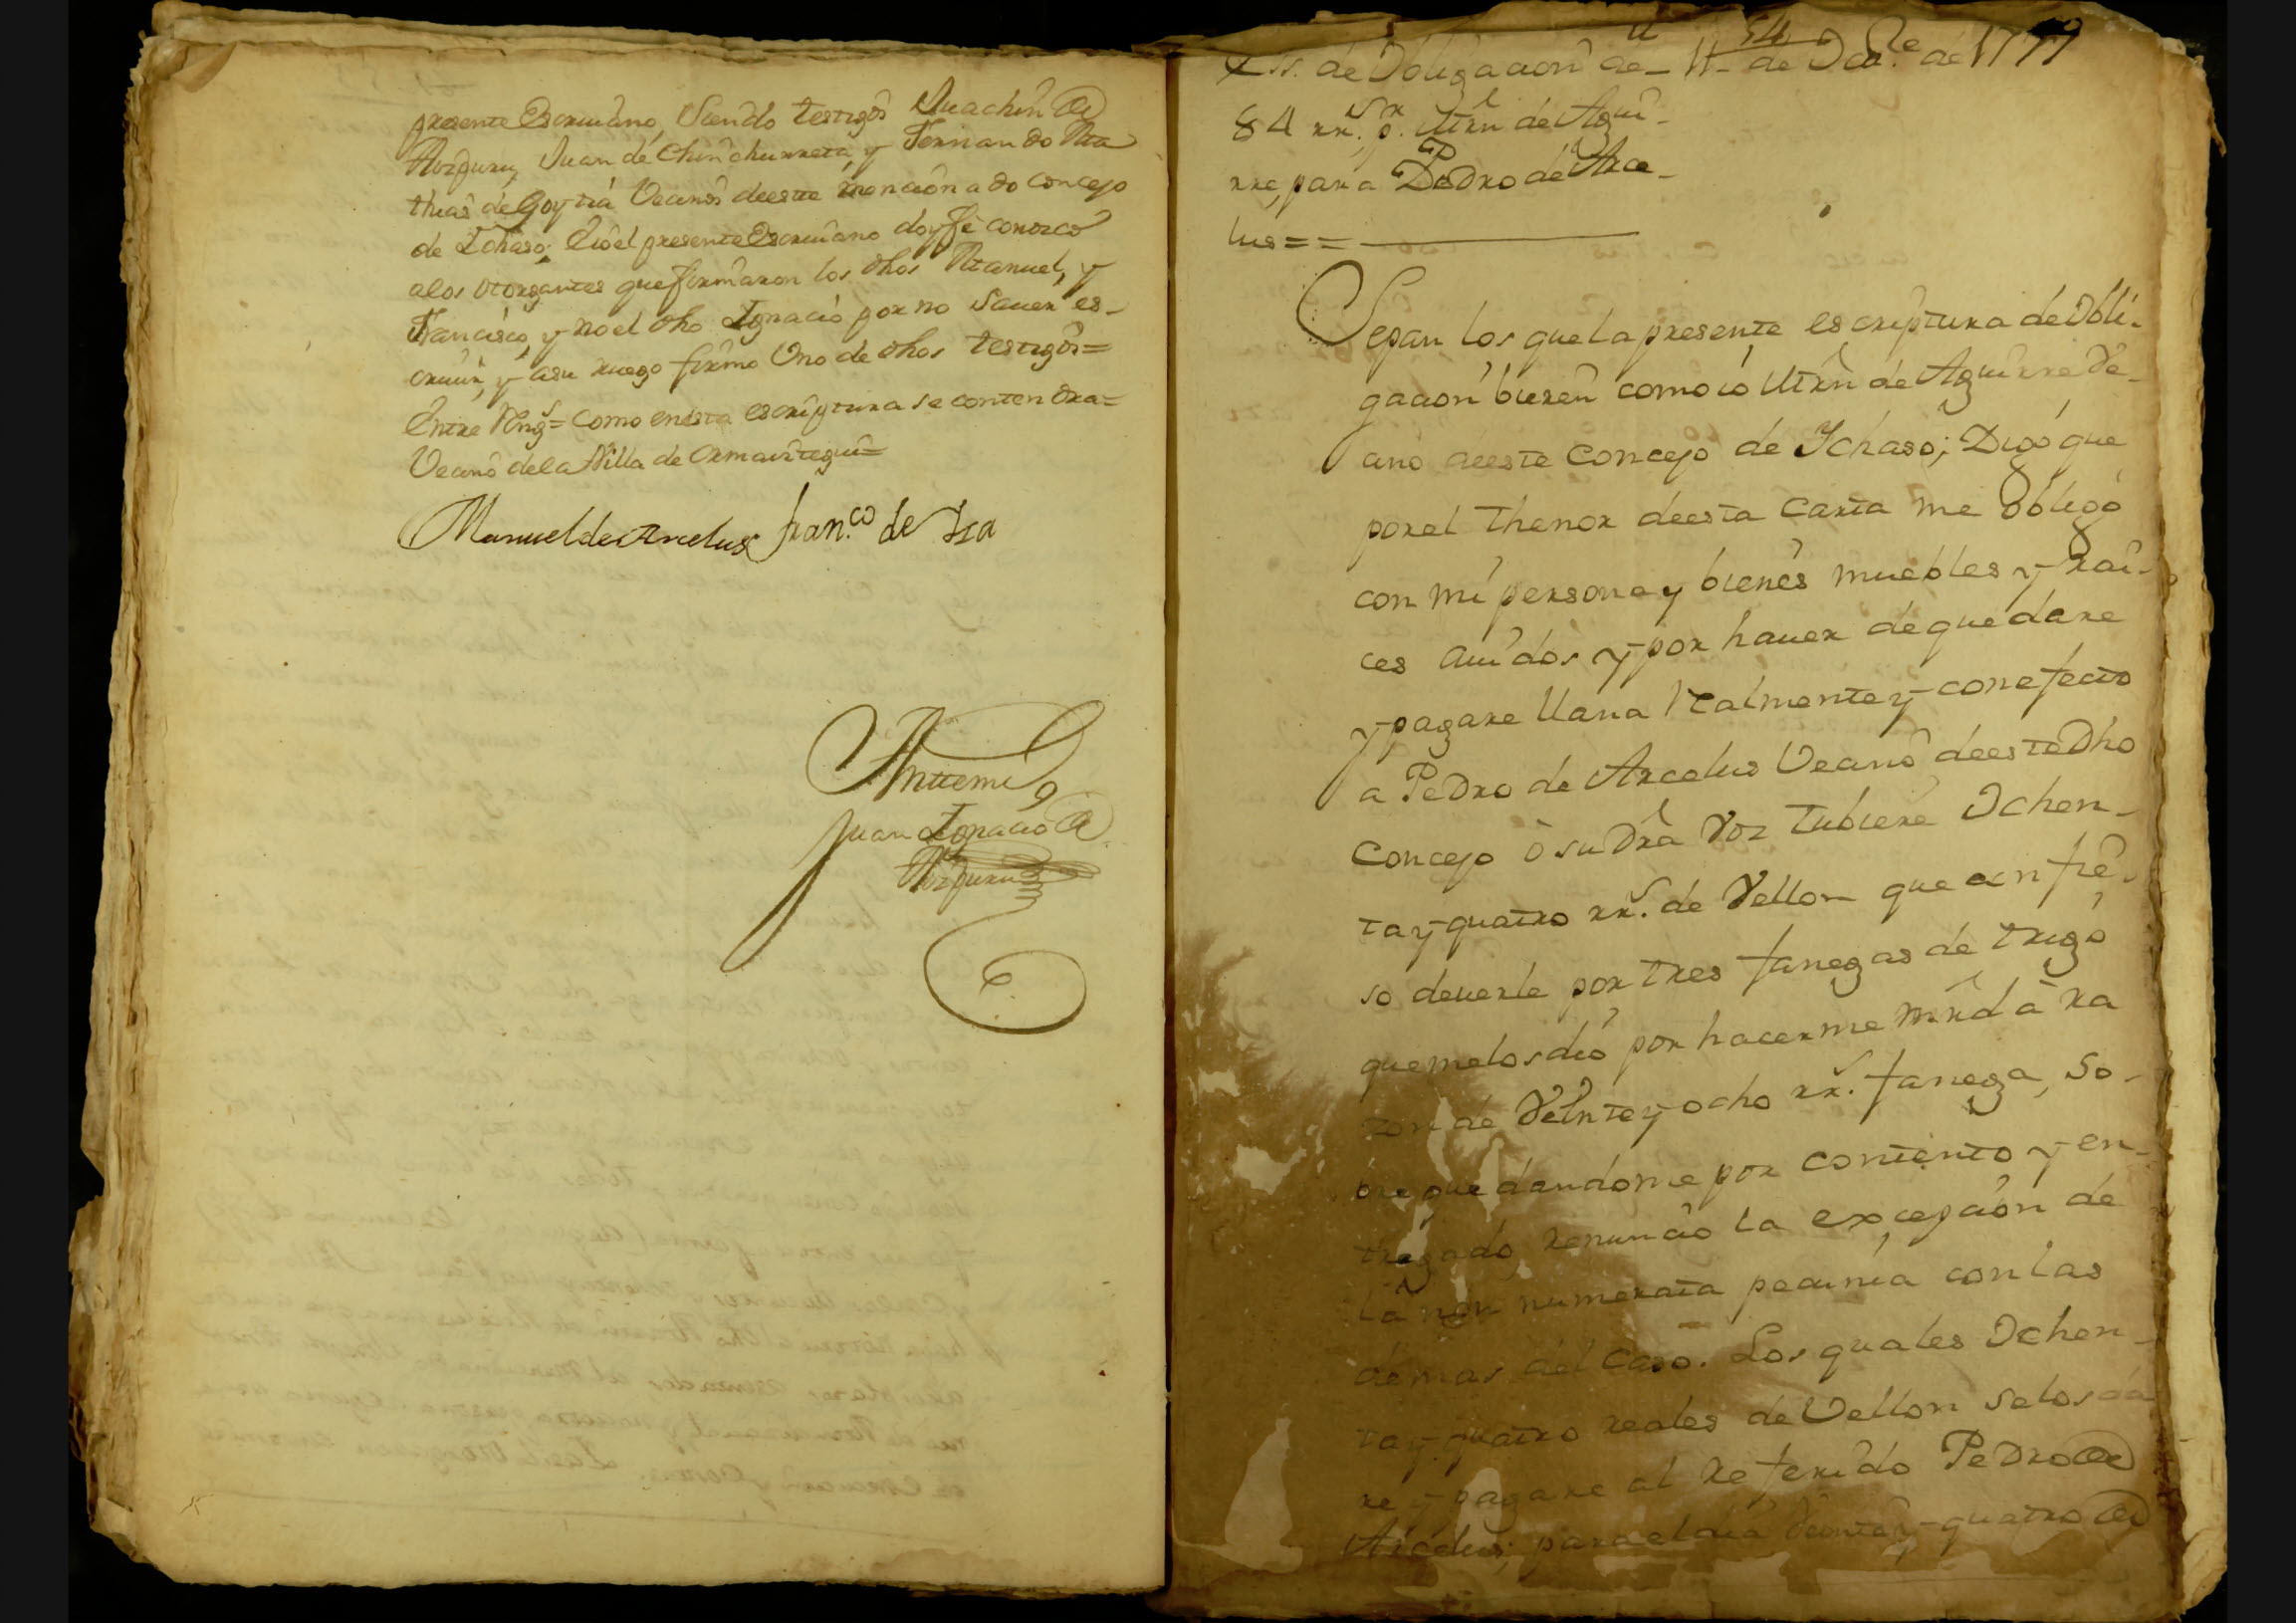 presente Escriuano, Siendo testigos Juachin de
Aizpuru, Juan de Chinchurreta, y Fernando Ma
thias de Goytia Vecinos deeste mencionado concejo
de Ichaso; Eio el presente Escriuano doy fe conozco
alos otorgantes que firmaron los dhos Manuel, y
Francisco, y no el dho Ignacio por no Sauer es-
criuir, y asu ruego firmo Uno de dhos testigos=
Entre Rengs= como enesta escriptura se contendra=
Vecino dela Villa de Ormaiztegui=
Manuel de Arcelus fran.co de Isa
Anttemi
Juan Ignacio de
Aizpuru
54
Ess. de Obligacion de 11 de Dcre. de 1779
84 rrs. pr. Mrn de Agui-
rre, para Pedro de Arce-
lus==
Sepan los que la presente escriptura de Obli-
gacion bieren como io Mrn de Aguirre Ve-
cino deeste Concejo de Ichaso; Digo que
por el thenor deesta Carta me obligo
con mi persona y bienes muebles y rai-
ces auidos y por hauer de que dare
y pagare llana Realmente y con efecto
a Pedro de Arcelus Vecino deeste Dho
Concejo ò su Dra Voz tubiere Ochen-
ta y quatro rrs. de Vellon que confie-
so deuerle por tres fanegas de trigo
que me los dio por hacerme mrd à ra
zon de Veinte y ocho rrs. fanega, so-
bre que dandome por contento y en-
tregado, Renuncio la excepcion de
la non numerata pecunia con las
demas del caso. Los quales Ochen-
ta y quatro reales de Vellon selos da
re y pagare al Referido Pedro de
Arcelus, para el dia Veinte y quatro de